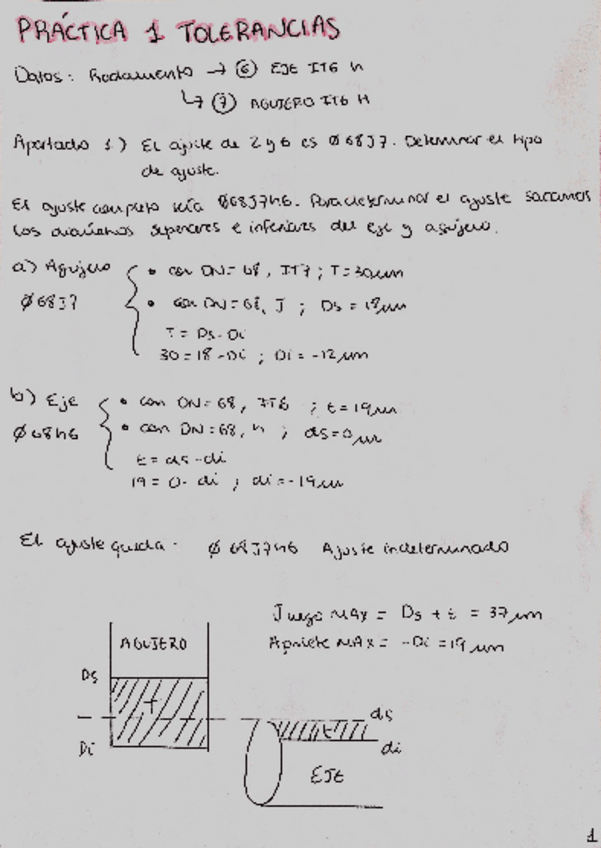 PRÁCTICA 1 TOLERANCIAS
Datos: Rodamiento → ⑥ EJE IT6 h
↳ ⑦ AGUJERO IT6 H
Apartado 1) El ajuste de 2 y 6 es Ø68J7. Determinar el tipo
de ajuste.
El ajuste completo sería Ø68J7h6. Para determinar el ajuste sacamos
los diámetros superiores e inferiores del eje y agujero.
a) Agujero
Ø68J7
• con DN=68, IT7; T=30μm
• con DN=68, J; Ds=18μm
T=Ds-Di
30=18-Di; Di=-12μm
b) Eje
Ø68h6
• con DN=68, IT6; t=19μm
• con DN=68, h; ds=0μm
t=ds-di
19=0-di; di=-19μm
El ajuste queda: Ø68J7h6 Ajuste indeterminado
Juego MAX = Ds + t = 37μm
Apriete MAX = -Di = 19μm
AGUJERO
Ds
T
Di
ds
t
di
EJE
1